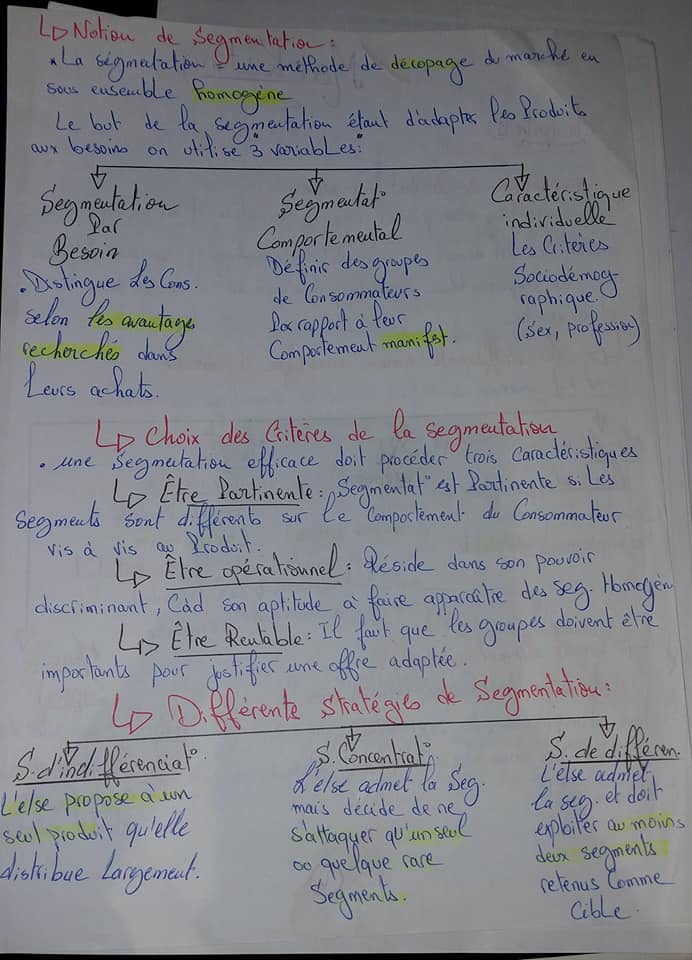 ↳ Notion de Segmentation :
• La ségmentation = une méthode de décopage du marché en
sous ensemble homogène
Le but de la segmentation étant d'adapter les Produits
aux besoins on utilise "3 variables" :
Segmentation
Par
Besoin
• Distingue Les Cons.
selon les avantage
recherchés dans
Leurs achats.
Segmentat°
Comportemental
Définir des groupes
de Consommateurs
Par rapport à leur
Comportement manifst.
Caractéristique
individuelle
Les Critères
Sociodémog-
raphique.
(Sex, profession)
↳ Choix des Critères de la segmentation
• une Segmentation efficace doit procéder trois Caractéristiques
↳ Être Partinente : Segmentat° est Partinente si Les
segments sont différents sur le Comportement du Consommateur
vis à vis au Produit.
↳ Être opérationnel : Réside dans son pouvoir
discriminant, Càd son aptitude à faire apparaître des seg. Homogèn
↳ Être Rentable : Il faut que les groupes doivent être
importants pour justifier une offre adaptée.
↳ Différente stratégies de Segmentation :
S. d'indifférenciat°
L'else propose à un
seul produit qu'elle
distribue Largement.
S. Concentrat°
L'else admet la Seg.
mais décide de ne
s'attaquer qu'un seul
ou quelque rare
Segments.
S. de différen.
L'else admet
la seg. et doit
exploiter au moins
deux segments
retenus Comme
Cible.